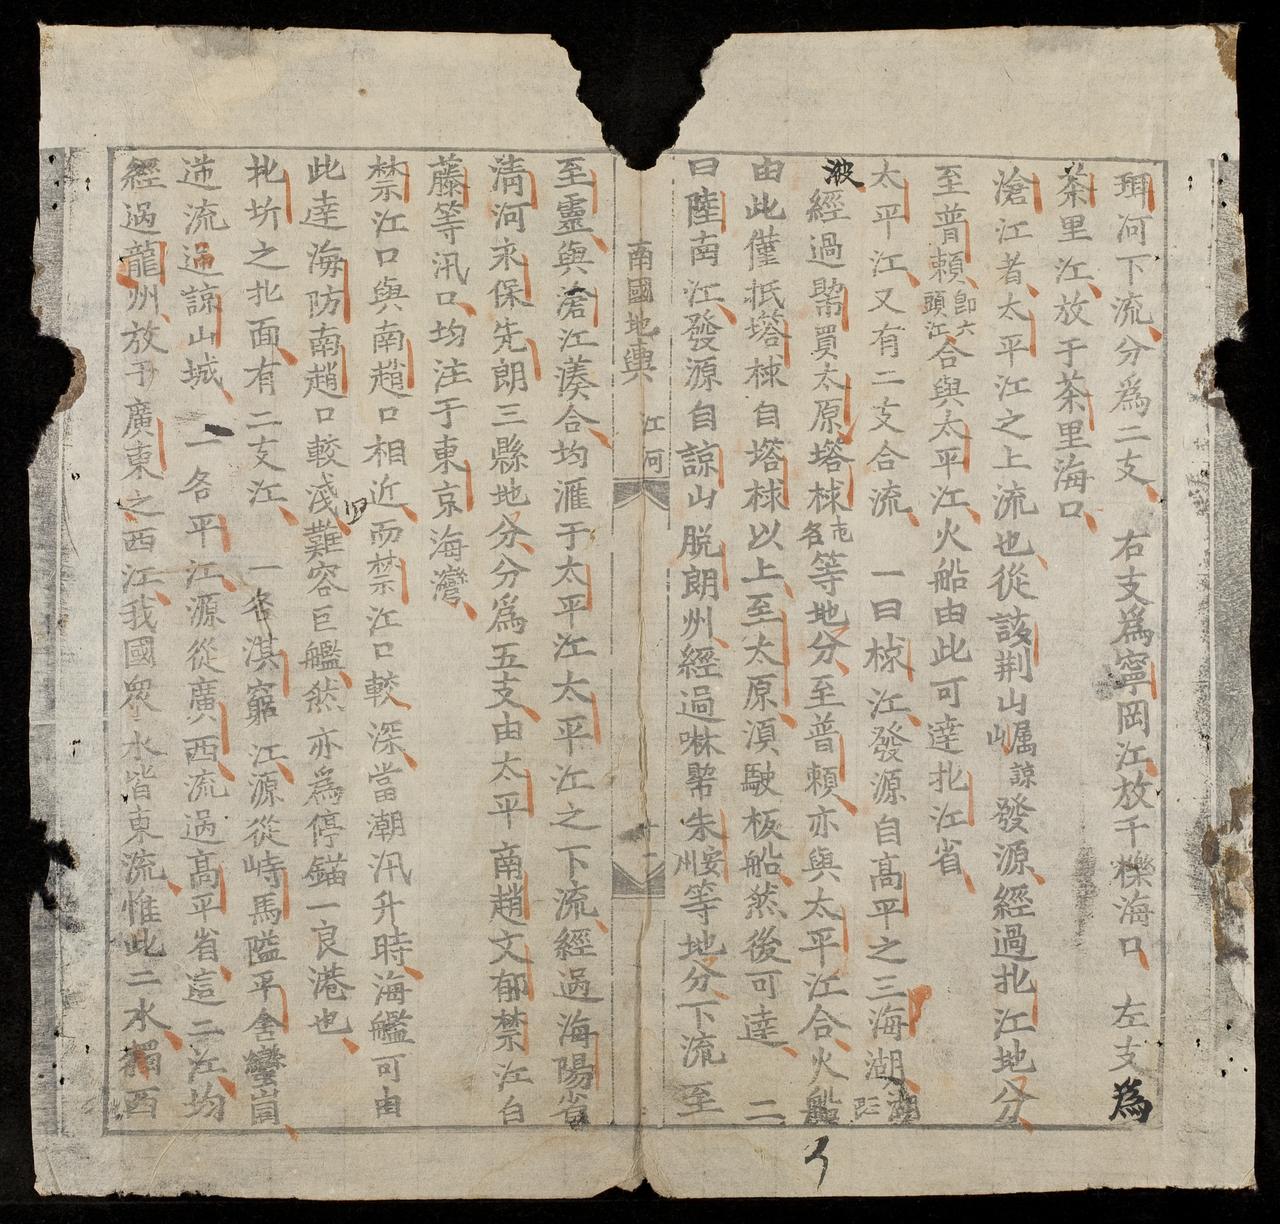 珥河下流分為二支　右支為寧岡江放于櫟海口　左支為
茶里江放于茶里海口
滄江者太平江之上流也從該荆山嵎諒發源經過北江地分
至普賴即六頭江合與太平江火船由此可達北江省
太平江又有二支合流　一曰椋江發源自高平之三海湖
經過幣買太原塔梂屯各等地分至普賴亦與太平江合火船
由此僅抵塔梂自塔梂以上至太原湏駛板船然後可達　二
曰陸南江發源自諒山脱朗州經過幣朱安州等地分下流至
南國地輿　江河　十二
至靈與滄江湊合均滙于太平江太平江之下流經過海陽省
清河永保先朗三縣地分分為五支由太平南趙文郁禁江白
藤等汛口均注于東京海灣
禁江口與南趙口相近而禁江口較深當潮汛升時海艦可由
此達海防南趙口較淺難容巨艦然亦為停錨一良港也
北圻之北面有二支江　一名淇窮江源從峙馬隘平舍蠻崗
逆流過諒山城　二名平江源從廣西流過高平省這二江均
經過龍州放于廣東之西江我國衆水皆東流惟此二水獨西